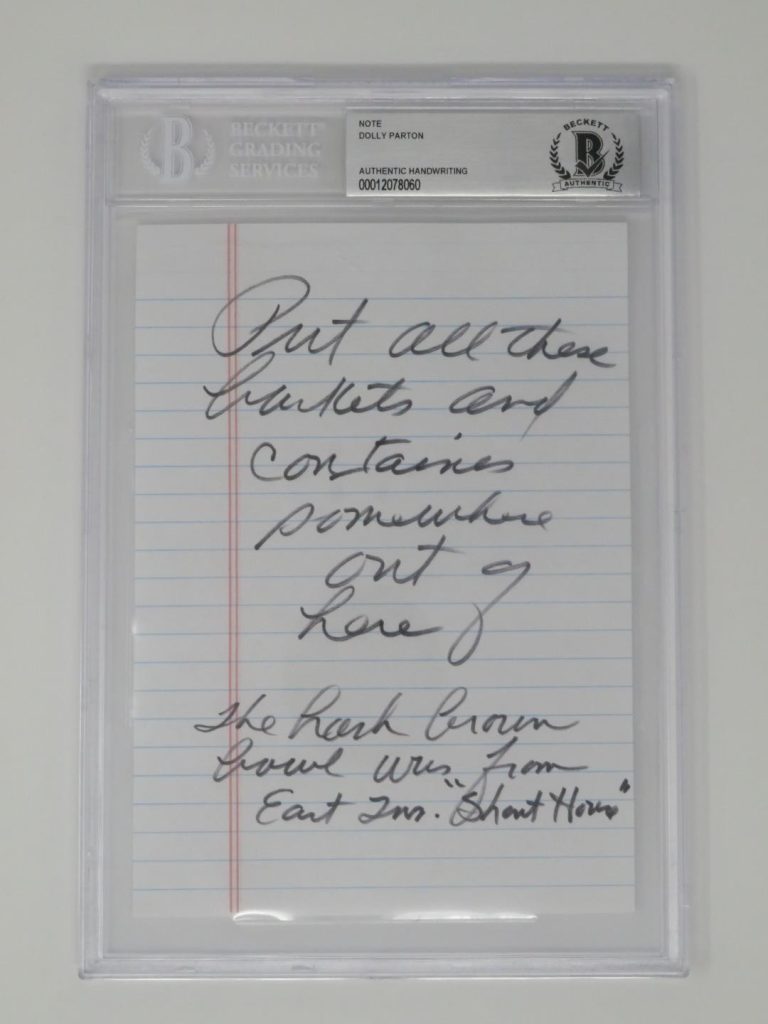 BECKETT
GRADING
SERVICES
B
NOTE
DOLLY PARTON
AUTHENTIC HANDWRITING
00012078060
BECKETT
B
AUTHENTIC
Put all these
baskets and
containes
somewhere
out of
here
The hash brown
bowl was from
East Tnn. "Shout House"